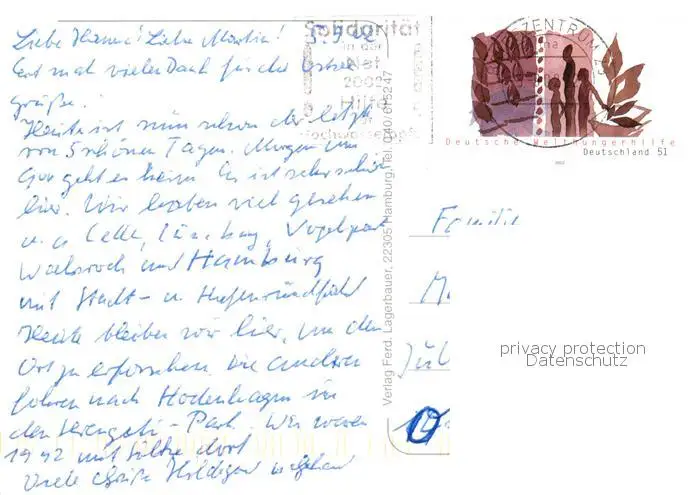 Liebe Hanna! Liebe Martin! 5.9.02
Erst mal vielen Dank für die Ostsee
grüße.
Heute ist nun schon der letzte
von 5 schönen Tagen. Morgen um
geht es heim. Es ist sehr schön
hier. Wir haben viel gesehen
u. a. Celle, Lüneburg, Vogelpark
Walsrode und Hamburg
mit Stadt- u. Hafenrundfahrt
Heute bleiben wir hier, um den
Ort zu erforschen. Die anderen
fahren nach Hodenhagen in
den Serengeti-Park. Wir waren
1992 mit dort
Viele Grüße Hildegard
Solidarität
in der
Not
2002
Hilfe
Verlag Ferd. Lagerbauer, 22305 Hamburg, Tel. 040/615247
ZENTRUM
Deutsche Welthungerhilfe
Deutschland 51
2002
Familie
M
privacy protection
Datenschutz